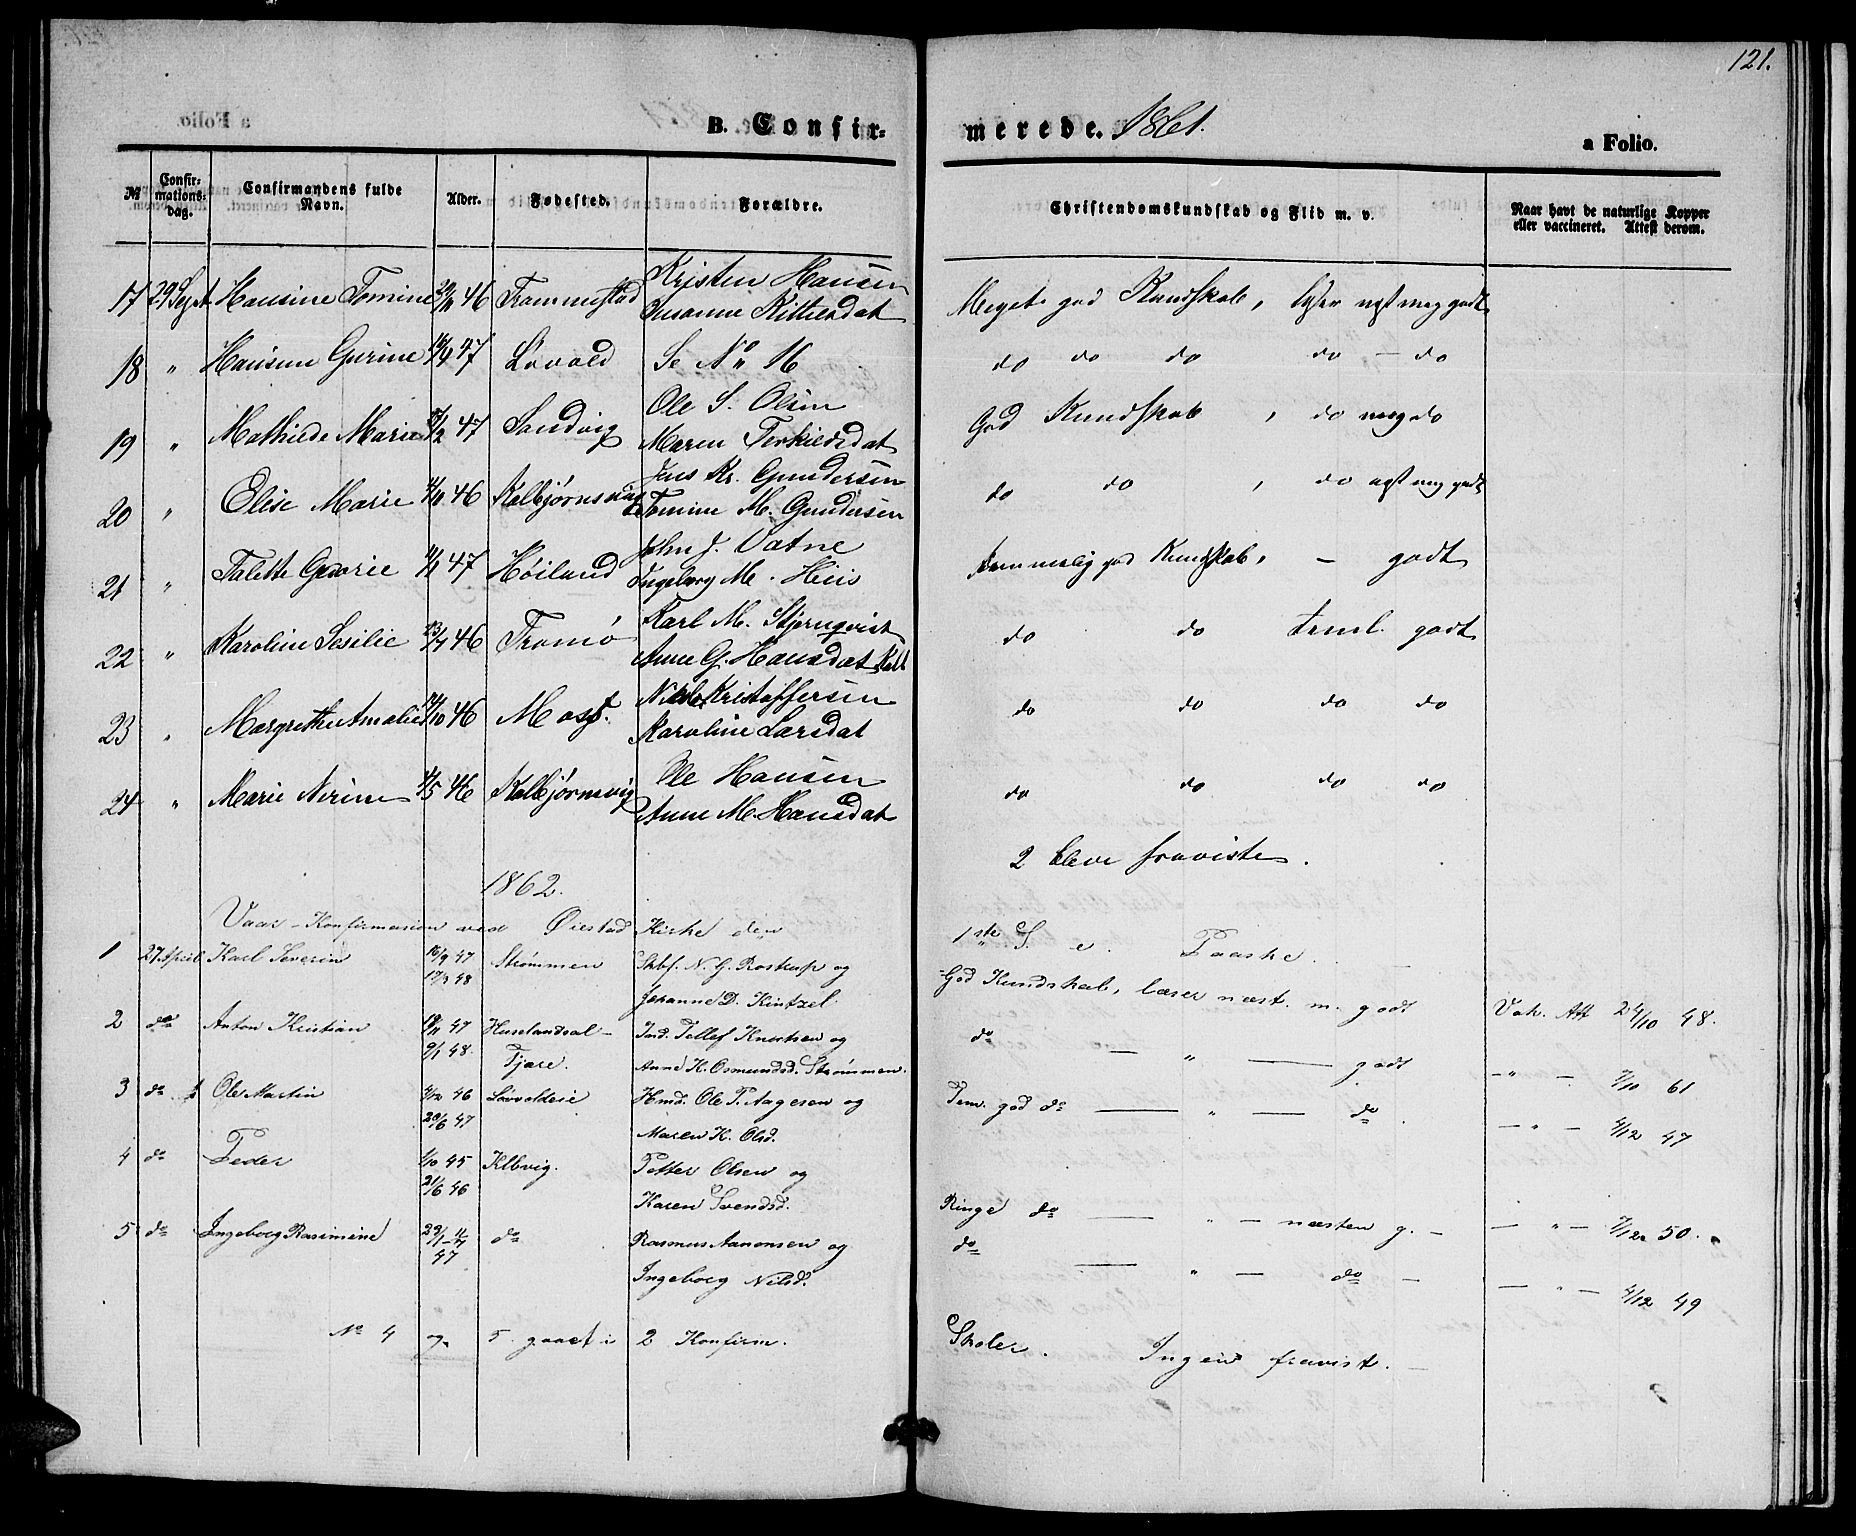 121.
B. Confir= merede. 1861.
a Folio.
№ Confir=mations=dag. Confirmandens fulde Navn. Alder. Fødested. Forældre. Christendomskundskab og Flid m. v. Naar havt de naturlige Kopper eller vaccineret. Attest derom.
17 29 Sept Hansine Tomine 46 Frommestad Kristen Hansen
Susanne Kittelsdat Meget god Kundskab, læser næst meg godt
18 " Hansine Gurine 47 Løvold Se No 16 do do do do - do
19 " Mathilde Marie 47 Sandvig Ole S. Olsen
Maren Terkildsdat God Kundskab, do meg do
20 " Elise Marie 46 Kolbjørnsvig Jens Kr. Gundersen
Tomine M. Gundersen do do, do næst meg godt
21 " Talette Georie 47 Høiland John J. Vatne
Ingeborg M. Temmelig god Kundskab, - godt
22 " Karoline Sesilie 23/7 46 Tromø Karl M. Stjernqvist
Anne G. Hansdat do do teml. godt
23 " Margrethe Amalie 46 Kristoffersen
Karoline Larsdat do do do do
24 " Marie Nirine 4/5 46 Kolbjørnsvig Ole Hansen
Anne M. Hansdat do do do do
2 bleve fraviste.
1862.
Vaar-Konfirmasion ved Øiestad Kirke den 1ste S. e. Paaske.
1 27 April Karl Severin 16/9 47 Strømmen Skbf. N. G. Rostrup og God Kundskab, læser næst. m. godt Vak. Att 24/10 48.
17/3 48 Johanne D. Kintzel.
2 do Anton Kristian 47 Huselandsal- Ind. Tellef Knutsen og do - " - godt - " - 7/10 61
9/1 48. Tjære. Anne K. Osmundsd. Strømmen.
3 do Ole Martin 4/12 46 Løvoldeie Hmd. Ole T. Aagesen og Tem. god do - " - do. - " - 4/12 47
20/6 47 Maren K. Olsd.
4 do Peder 1/10 45 Klbvig. Petter Olsen og Ringe do - " - næsten g. - - " - 7/12 50.
21/6 46 Karen Svendsd.
5 do Ingeborg Rasimine 47 do Rasmus Aanonsen og do - " - do - - " - 4/12 49
Ingeborg Nilsd.
No 4 og 5 gaaet i 2 Konfirm. Skoler. Ingen fravist.